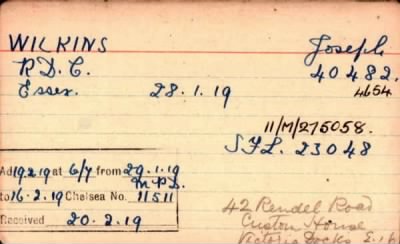 WILKINS Joseph
R.D.C. 40482.
Essex. 28.1.19 4654
11/M/275058.
S.F.L. 23048
Ad 19.2.19 at 6/7 from 29.1.19
M.P.D.
to 16.2.19 Chelsea No. 11511
Received 20.2.19
42 Rendel Road
Custom House
Victoria Docks E.16